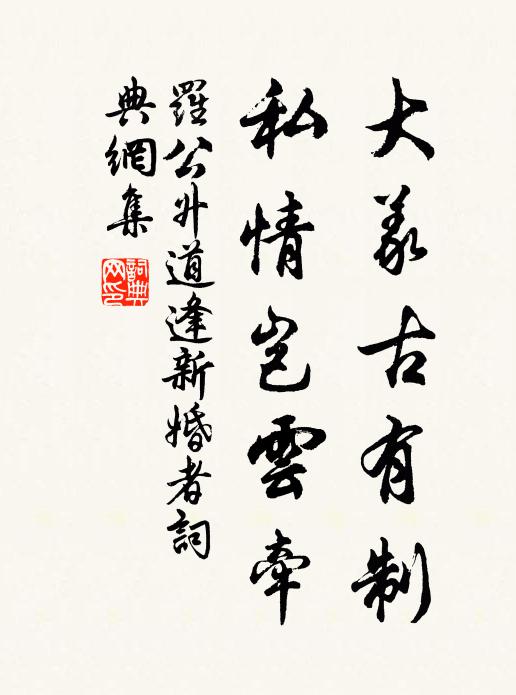 大義古有制
私情岂雲牽
羅公升道逢新婚者詞
典網集
詞典网印